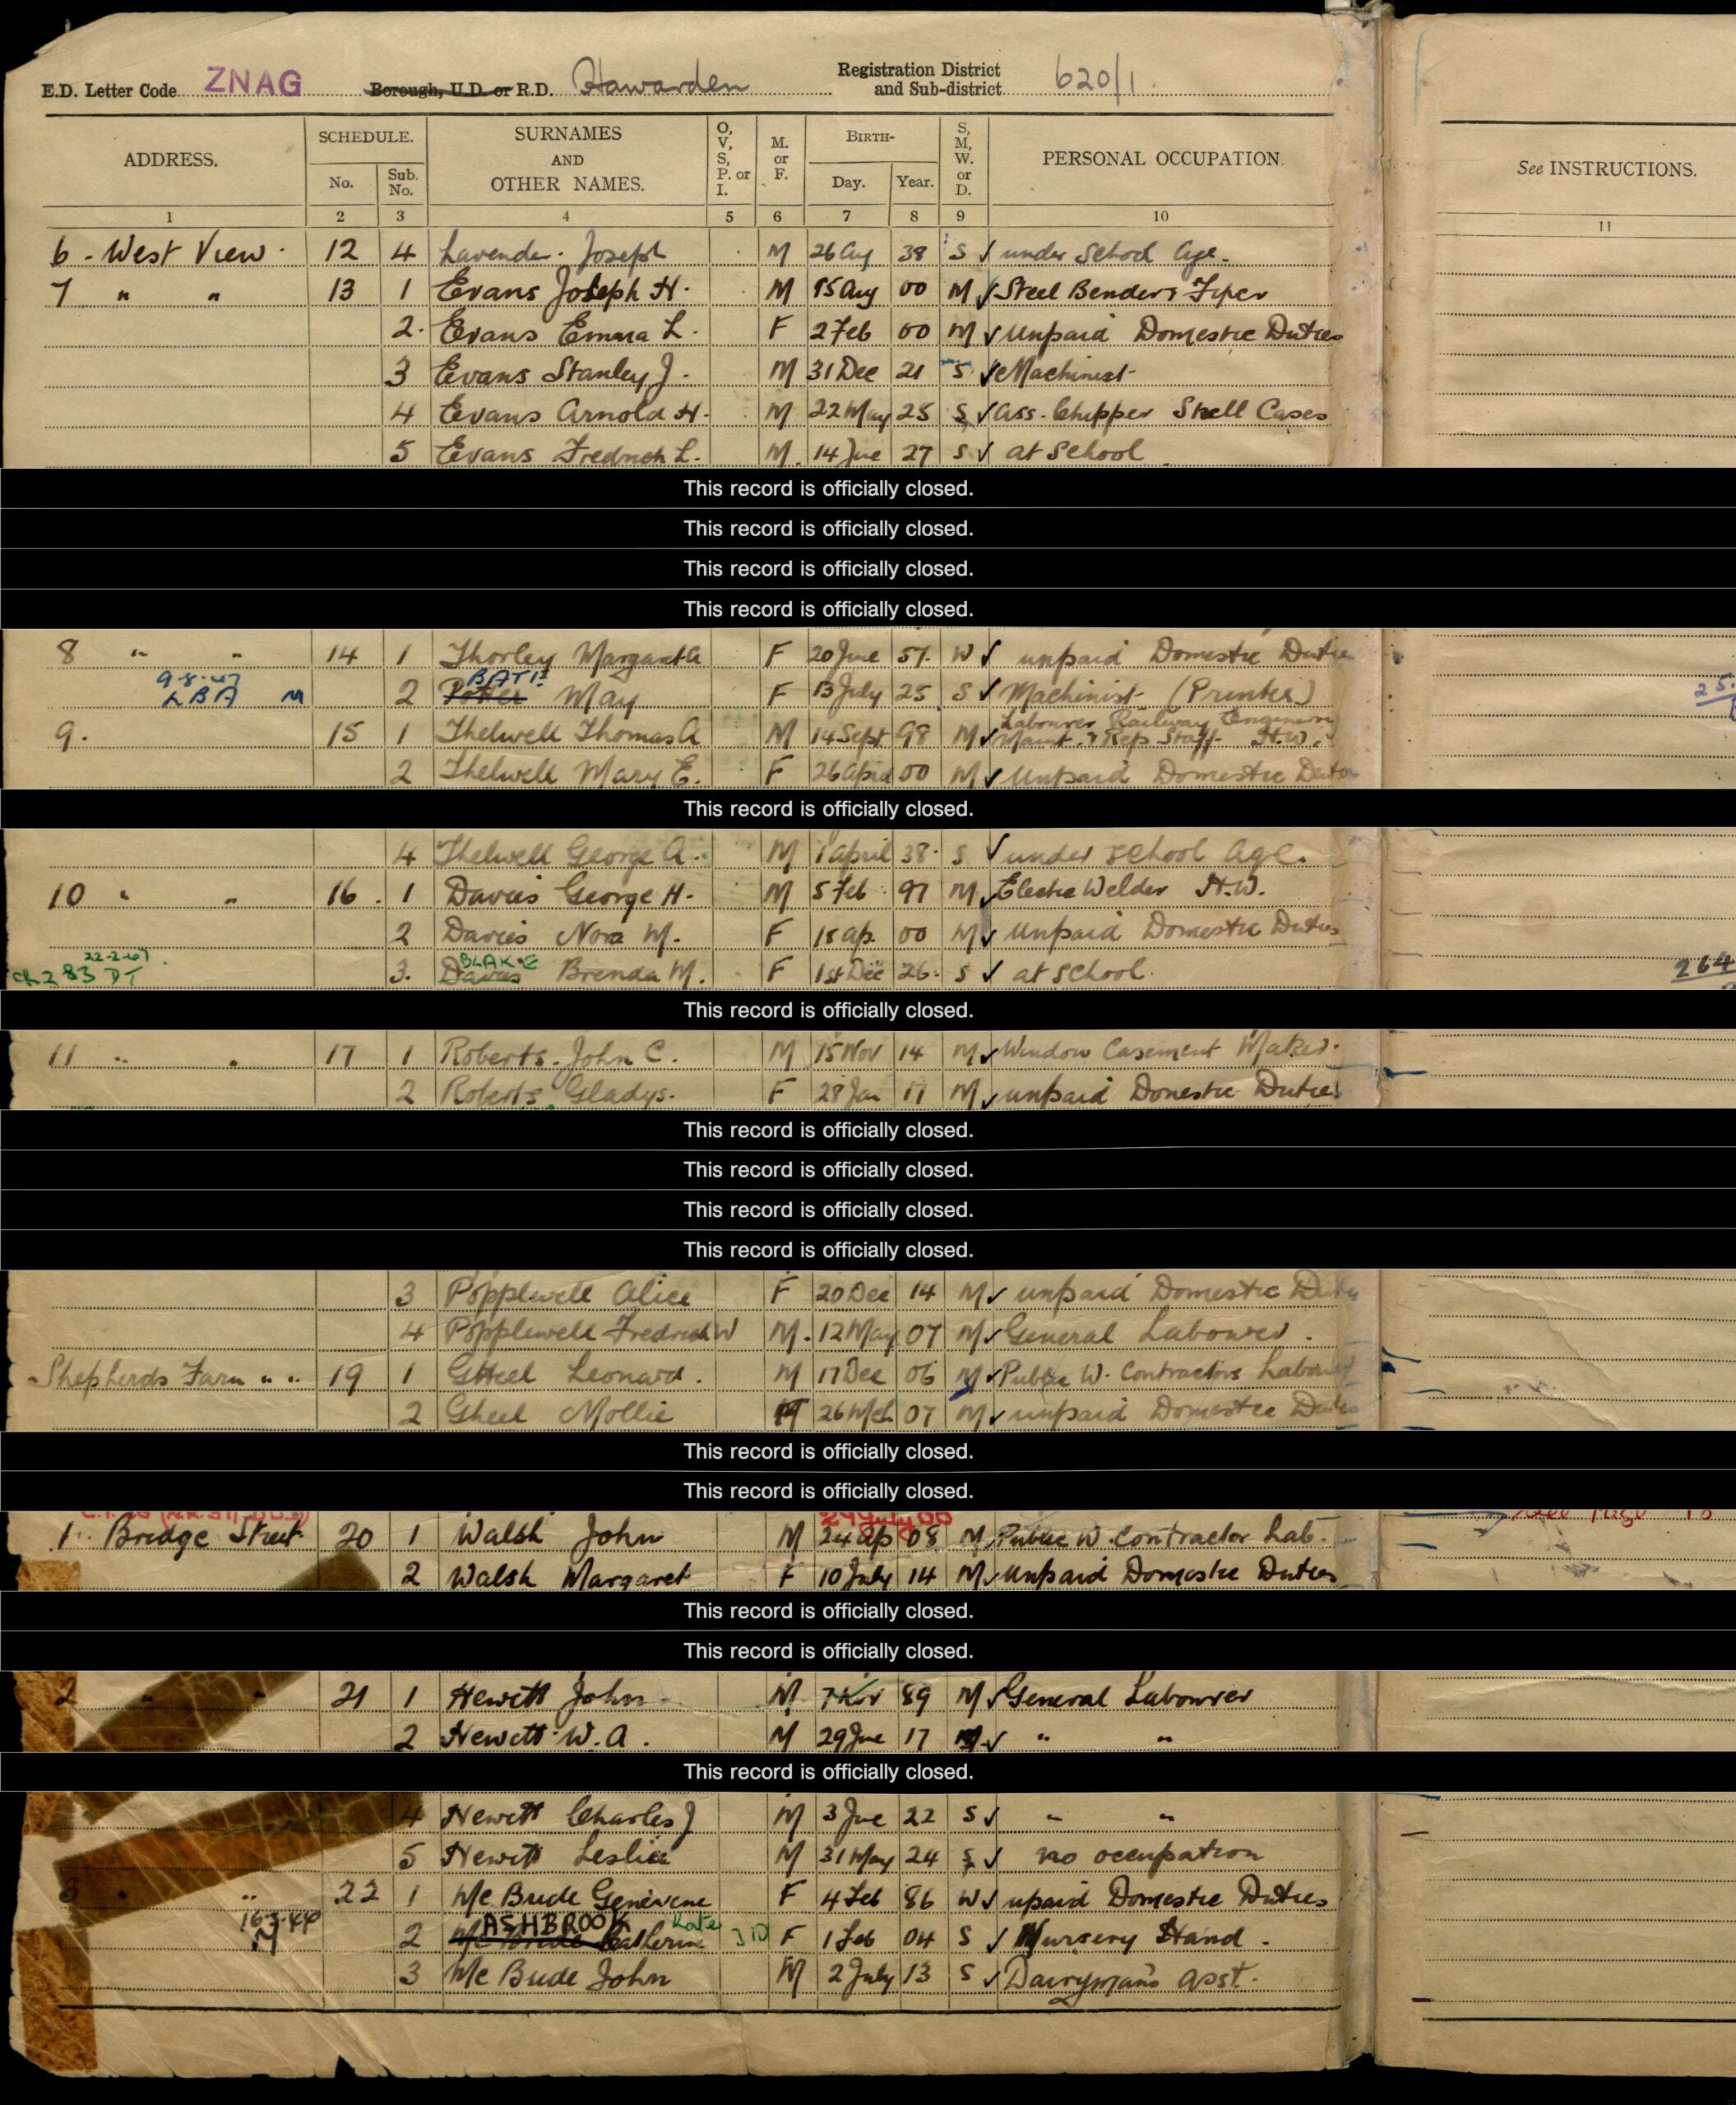 E.D. Letter Code ZNAG Borough, U.D. or R.D. Hawarden Registration District and Sub-district 620/1.
ADDRESS. SCHEDULE. No. Sub. No. SURNAMES AND OTHER NAMES. O, V, S, P. or I. M. or F. BIRTH- Day. Year. S, M, W. or D. PERSONAL OCCUPATION. See INSTRUCTIONS.
1 2 3 4 5 6 7 8 9 10 11
6 - West View. 12 4 Lavender. Joseph M 26 Aug 38 S ✓ under School Age.
7 " " 13 1 Evans Joseph H. M 15 Aug 00 M ✓ Steel Benders
2. Evans Emma L. F 2 Feb 00 M ✓ Unpaid Domestic Duties
3 Evans Stanley J. M 31 Dec 21 S ✓ Machinist
4 Evans Arnold H. M 22 May 25 S ✓ Ass. Chipper Shell Cases
5 Evans Fredrick L. M. 14 Jue 27 S ✓ at School
This record is officially closed.
This record is officially closed.
This record is officially closed.
This record is officially closed.
8 " " 14 1 Thorley Margaret A F 20 June 57. W ✓ unpaid Domestic Dutie
9-8-47 BATH
LBA M 2 Potter May F 13 July 25 S ✓ Machinist (Printer)
9. 15 1 Thelwell Thomas A M 14 Sept 98 M ✓ Labourer Railway Engineering
Maint. & Reps Staff H.W.
2 Thelwell Mary E. F 26 April 00 M ✓ Unpaid Domestic Duties
This record is officially closed.
4 Thelwell George A. M 1 April 38. S ✓ under school age.
10 " " 16. 1 Davies George H. M 5 Feb 97 M ✓ Electric Welder H.W.
2 Davies Nora M. F 18 ap. 00 M ✓ Unpaid Domestic Duties
22-2-67. BLAKE
CR283 DT 3. Davies Brenda M. F 1st Dec 26. S ✓ at school. 264
This record is officially closed.
11 " " 17 1 Roberts. John C. M 15 Nov 14 M ✓ Window Casement Maker.
2 Roberts Gladys. F 28 Jan 17 M ✓ unpaid Domestic Duties
This record is officially closed.
This record is officially closed.
This record is officially closed.
This record is officially closed.
3 Popplewell Alice F 20 Dec 14 M ✓ unpaid Domestic Duties
4 Popplewell Fredrick W M. 12 May 07 M ✓ General Labourer.
Shepherds Farm " " 19 1 Gheel Leonard. M 17 Dec 06 M ✓ Public W. Contractors Labourer
2 Gheel Mollie 26 Mch 07 M ✓ unpaid Domestic Duties
This record is officially closed.
This record is officially closed.
24 July 00 See Page 10
1. Bridge Street 20 1 Walsh John M 24 ap 08 M ✓ Public W. Contractor Lab.
2 Walsh Margaret F 10 July 14 M ✓ Unpaid Domestic Duties
This record is officially closed.
This record is officially closed.
2 " " 21 1 Hewitt John M 7 Nov 89 M ✓ General Labourer
2 Hewitt W.A. M 29 Jue 17 M ✓ " "
This record is officially closed.
4 Hewitt Charles J M 3 Jue 22 S ✓ " "
5 Hewitt Leslie M 31 May 24 S ✓ no occupation
3 " " 22 1 Mc Bride Genevieve F 4 Feb 86 W ✓ upaid Domestic Duties
16-3-44 ASHBROOK Kate
2 Mc Bride Katherine F 1 Feb 04 S ✓ Nursery Hand.
3 Mc Bride John M 2 July 13 S ✓ Dairymans asst.